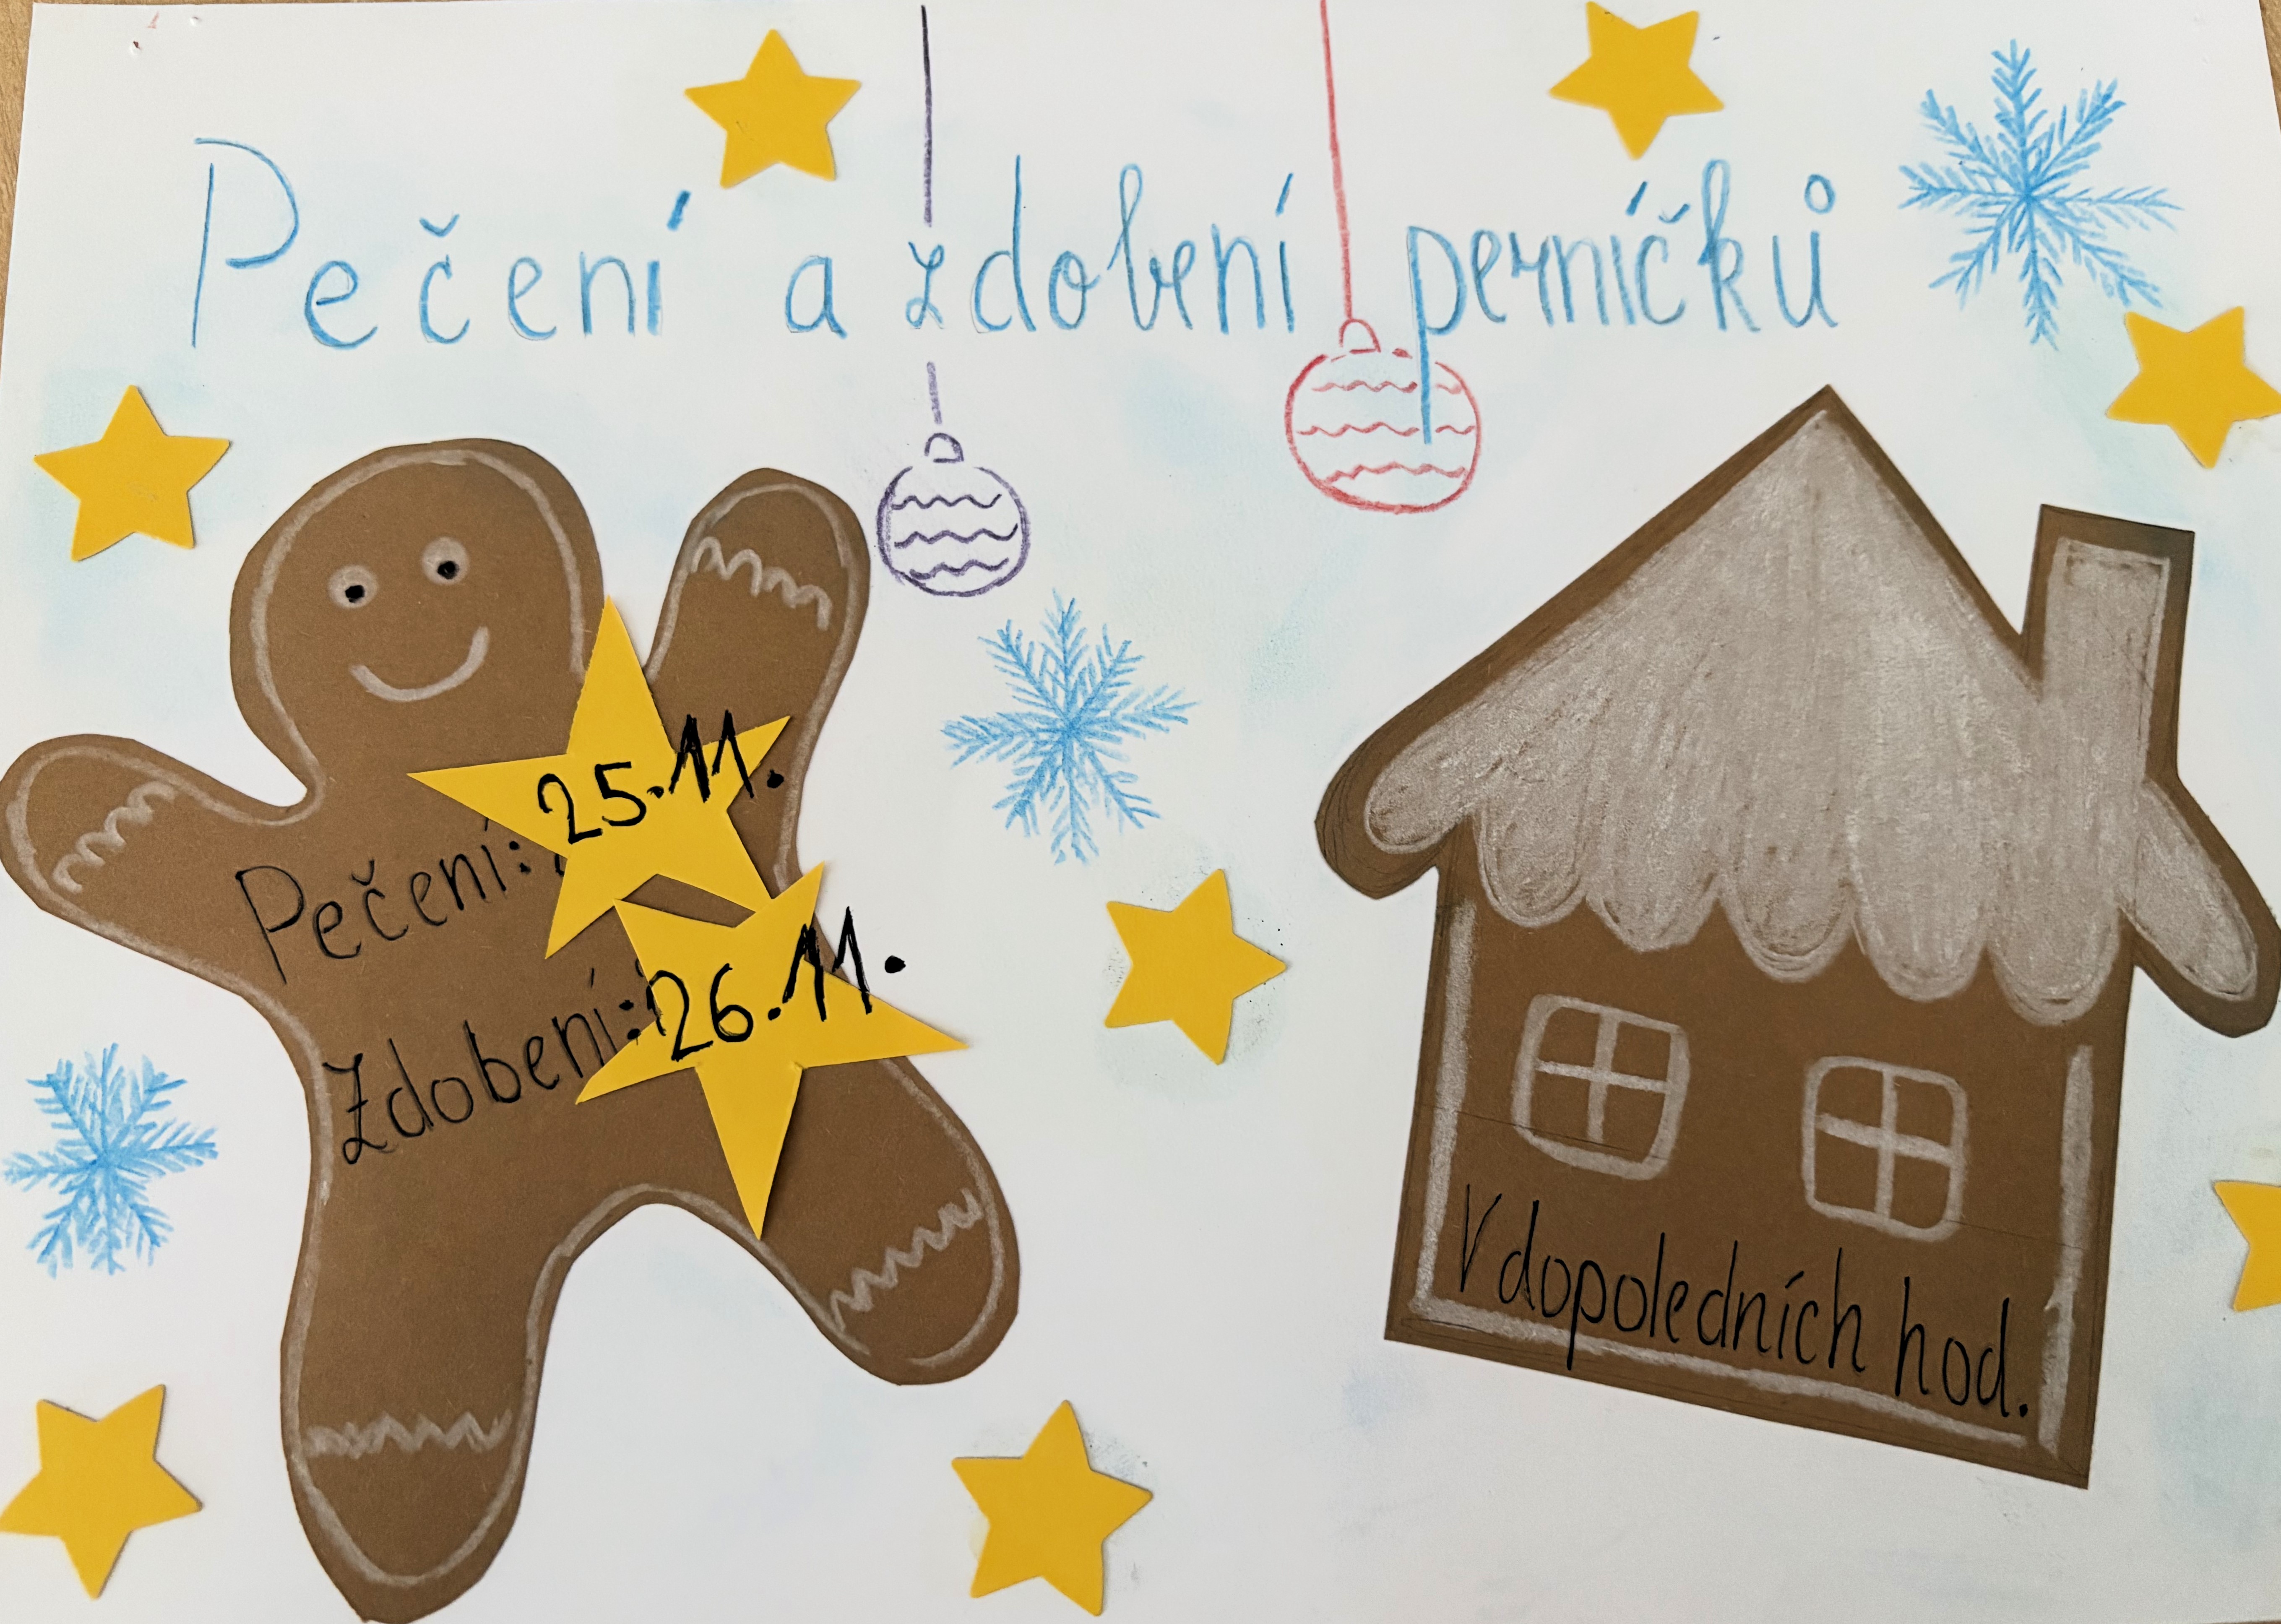 Pečení a zdobení perníčků
Pečení: 25.11.
Zdobení: 26.11.
V dopoledních hod.